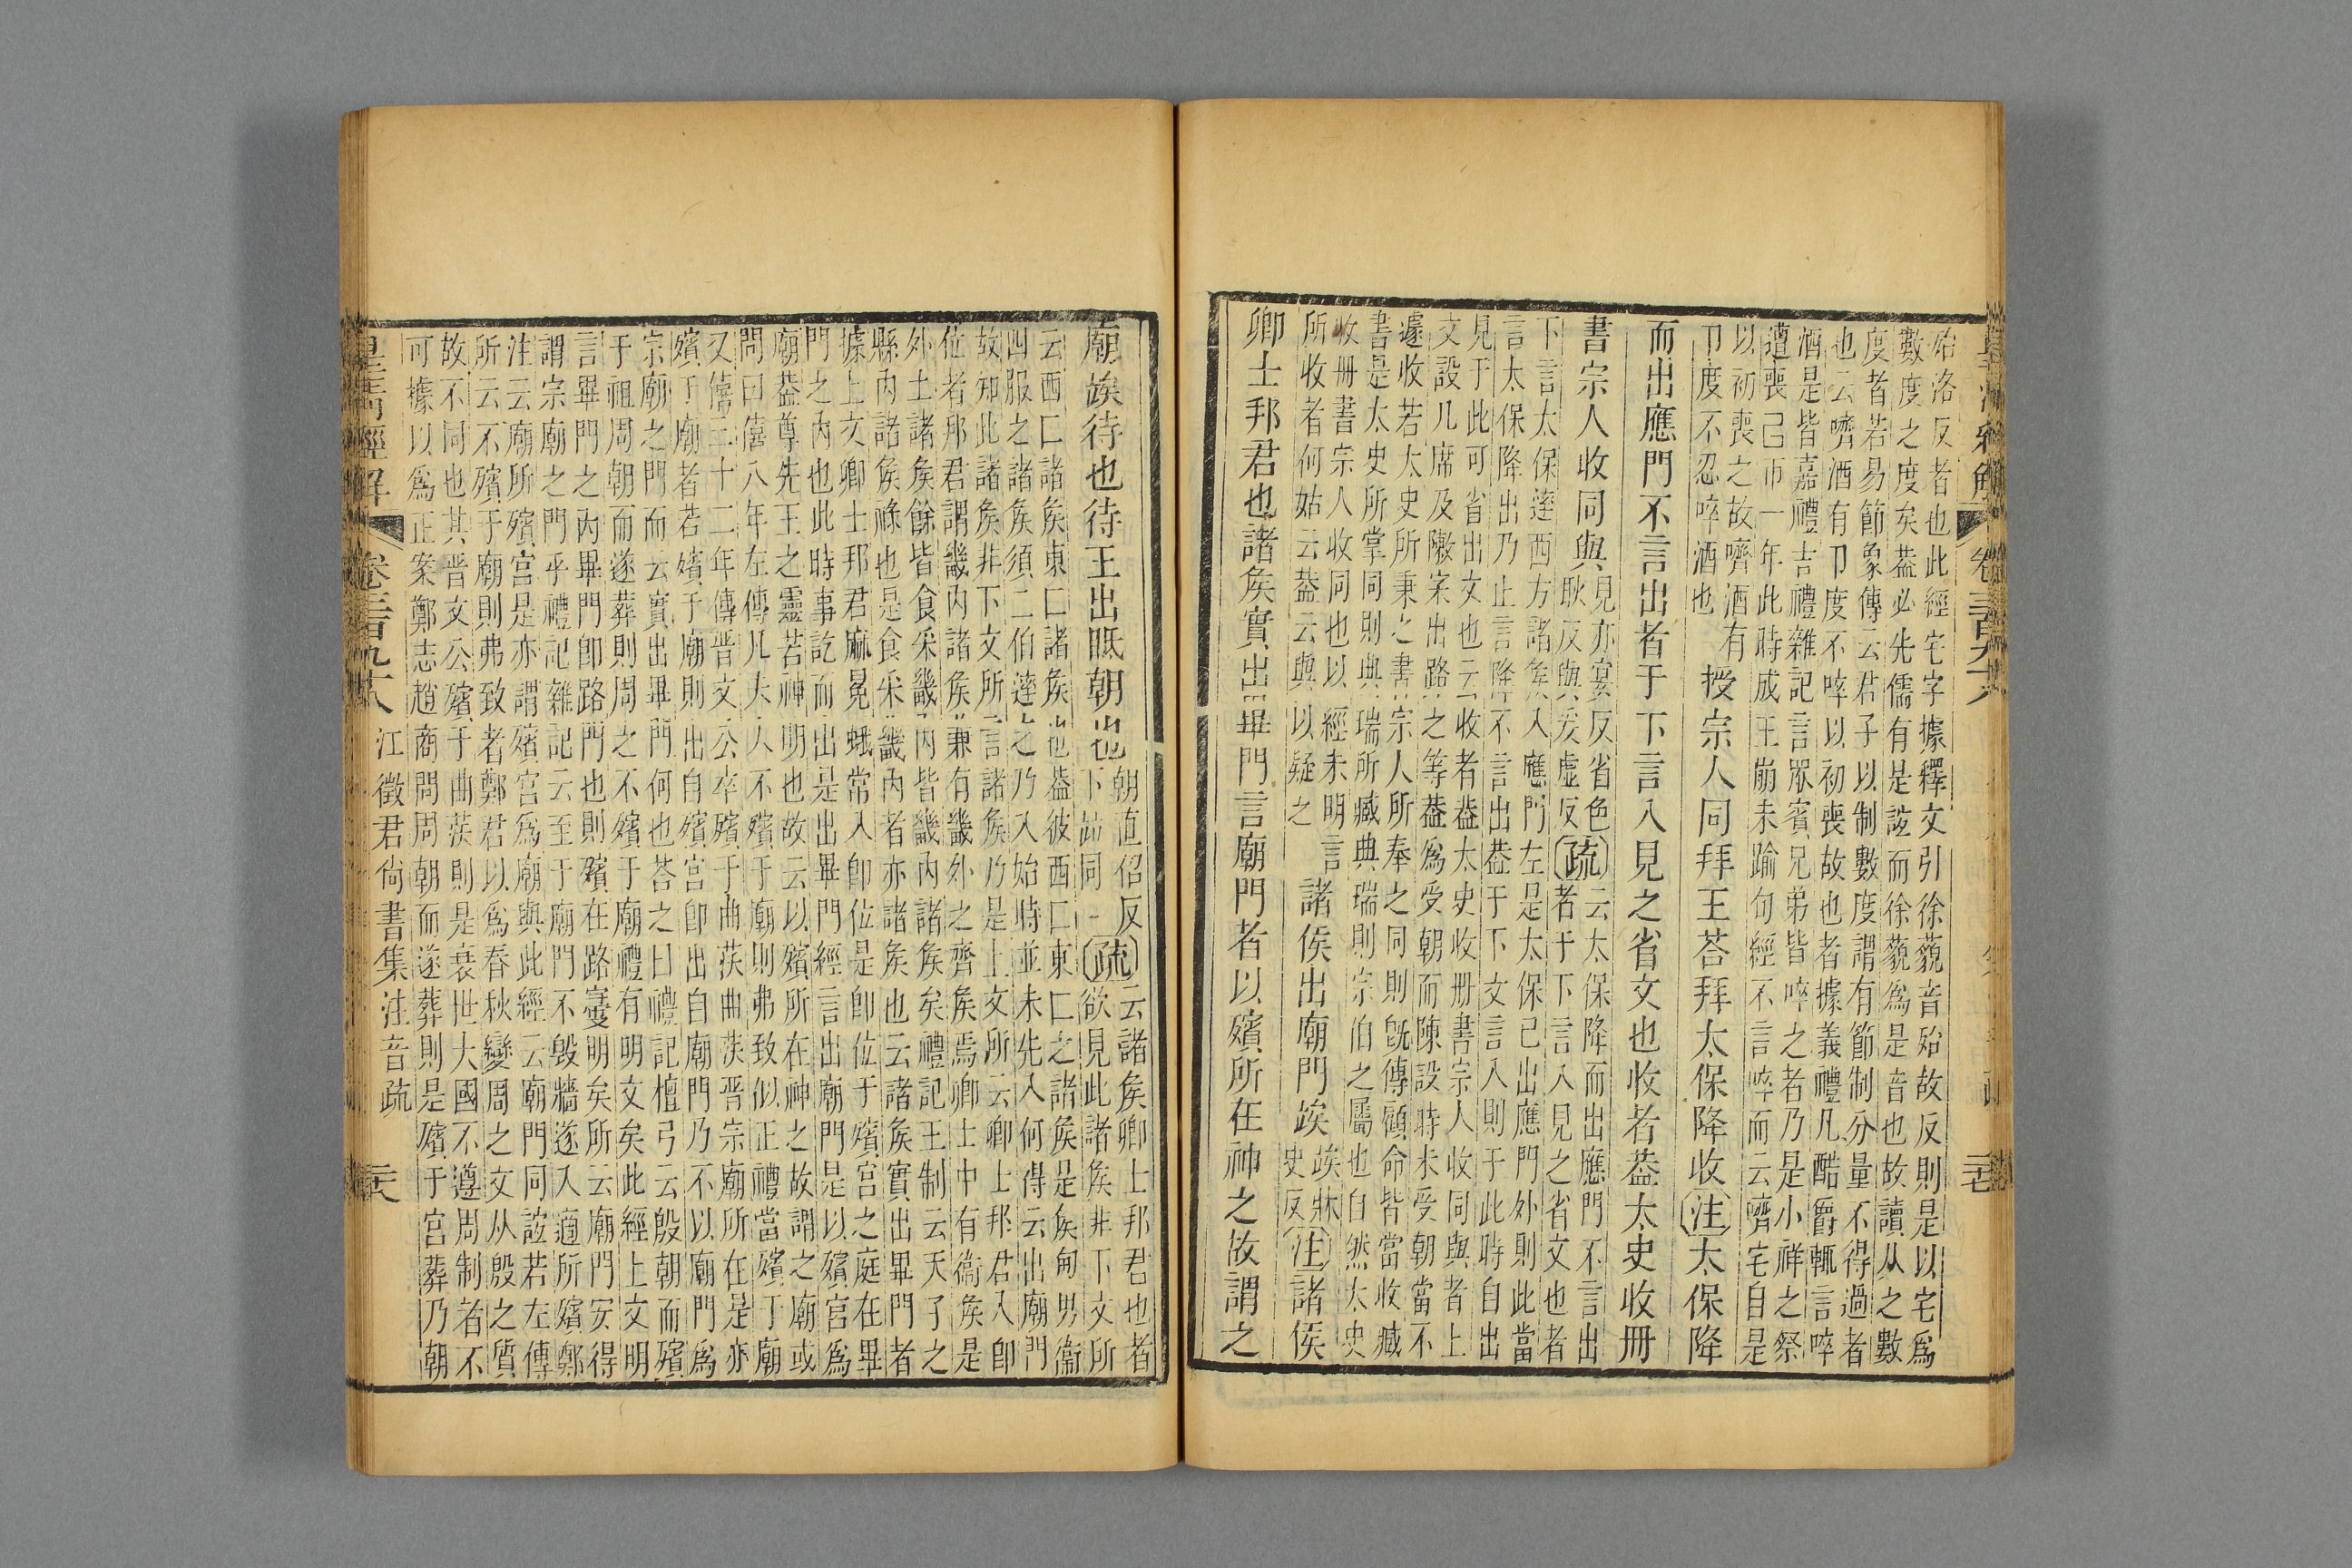 殆洛反者也此經宅字據釋文引徐藐音殆故反則是以宅爲
數度之度矣葢必先儒有是說而徐藐爲是音也故讀从之數
度者若易節象傳云君子以制數度謂有節制分量不得過者
也云嚌酒有卩度不啐以初喪故也者據義禮凡酷爵輒言啐
酒是皆嘉禮吉禮雜記言眾賓兄弟皆啐之者乃是小祥之祭
遭喪己帀一年此時成王崩未踰旬經不言啐而云嚌宅自是
以初喪之故嚌酒有
卩度不忍啐酒也
授宗人同拜王荅拜太保降收注太保降
而出應門不言出者于下言入見之省文也收者葢太史收冊
書宗人收同與
見亦宴反省色
耿反與爰虛反
疏
云太保降而出應門不言出
者于下言入見之省文也者
下言太保達西方諸矦入應門左是太保已出應門外則此當
言太保降出乃止言降不言出葢于下文言入則于此時自出
見于此可省出文也云收者葢太史收冊書宗人收同與者上
文設几席及陳宋出路之等葢爲受朝而陳設時未受朝當不
遽收若太史所秉之書宗人所奉之同則旣傳顧命皆當收臧
書是太史所掌同則典瑞所臧典瑞則宗伯之屬也自然太史
收冊書宗人收同也以經未明言
所收者何姑云葢云與以疑之
諸矦出廟門竢
竢牀
史反
注諸矦
卿士邦君也諸矦實出畢門言廟門者以殯所在神之故謂之
廟竢待也待王出眂朝也
朝直佋反
下竝同
疏
云諸矦卿士邦君也者
欲見此諸矦非下文所
云西囗諸矦東囗諸矦也葢彼西囗東囗之諸矦是矦甸男衞
四服之諸矦須二伯達之乃入始時並未先入何得云出廟門
故知此諸矦非下文所言諸矦乃是上文所云卿士邦君入卽
位者邦君謂畿内諸矦兼有畿外之齊矦焉卿士中有衞矦是
外土諸矦餘皆食采畿内皆畿内諸矦矣禮記王制云天子之
縣内諸矦祿也是食采畿内者亦諸矦也云諸矦實出畢門者
據上文卿士邦君麻冕蛾常入卽位是卽位于殯宫之庭在畢
門之内也此時事訖而出是出畢門經言出廟門是以殯宫爲
廟葢尊先王之靈若神明也故云以殯所在神之故謂之廟或
問曰僖八年左傳凡夫人不殯于廟則弗致似正禮當殯于廟
又僖三十二年傳晋文公卒殯于曲茨曲茨晋宗廟所在是亦
殯于廟者若殯于廟則出自殯宫卽出自廟門乃不以廟門爲
宗廟之門而云實出畢門何也荅之曰禮記檀弓云殷朝而殯
于祖周朝而遂葬則周之不殯于廟禮有明文矣此經上文明
言畢門之内畢門卽路門也則殯在路寑明矣所云廟門安得
謂宗廟之門乎禮記雜記云至于廟門不毀牆遂入適所殯鄭
注云廟所殯宫是亦謂殯宫爲廟與此經云廟門同說若左傳
所云不殯于廟則弗致者鄭君以爲春秋變周之文从殷之質
故不同也其晋文公殯于曲茨則是衰世大國不遵周制者不
可據以爲正案鄭志趙商問周朝而遂葬則是殯于宫葬乃朝
皇淸經解 卷三百九十八 江徵君尙書集注音疏 二十八